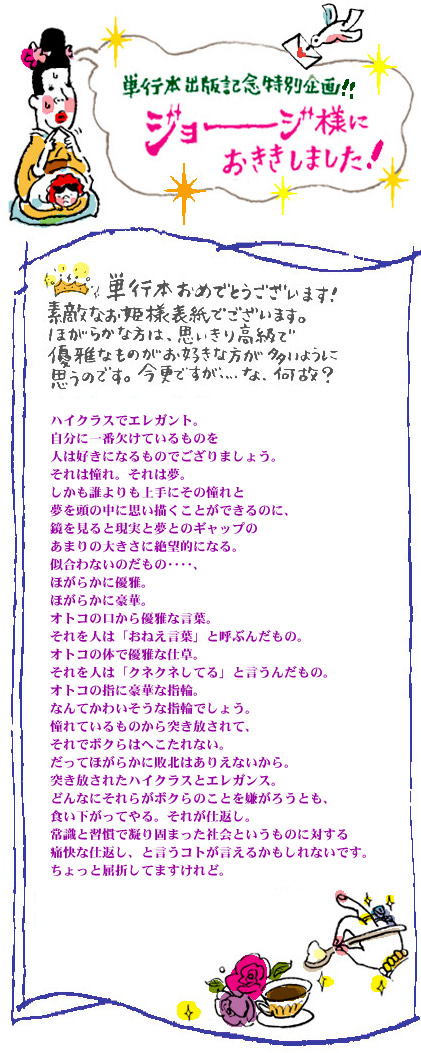 単行本出版記念特別企画!!
ジョージ様に
おききしました!
単行本おめでとうございます!
素敵なお姫様表紙でございます。
ほがらかな方は、思いきり高級で
優雅なものがお好きな方が多いように
思うのです。今更ですが、…な、何故?
ハイクラスでエレガント。
自分に一番欠けているものを
人は好きになるものでござりましょう。
それは憧れ。それは夢。
しかも誰よりも上手にその憧れと
夢を頭の中に思い描くことができるのに、
鏡を見ると現実と夢とのギャップの
あまりの大きさに絶望的になる。
似合わないのだもの‥‥、
ほがらかに優雅。
ほがらかに豪華。
オトコの口から優雅な言葉。
それを人は「おねえ言葉」と呼ぶんだもの。
オトコの体で優雅な仕草。
それを人は「クネクネしてる」と言うんだもの。
オトコの指に豪華な指輪。
なんてかわいそうな指輪でしょう。
憧れているものから突き放されて、
それでボクらはへこたれない。
だってほがらかに敗北はありえないから。
突き放されたハイクラスとエレガンス。
どんなにそれらがボクらのことを嫌がろうとも、
食い下がってやる。それが仕返し。
常識と習慣で凝り固まった社会というものに対する
痛快な仕返し、と言うコトが言えるかもしれないです。
ちょっと屈折してますけれど。